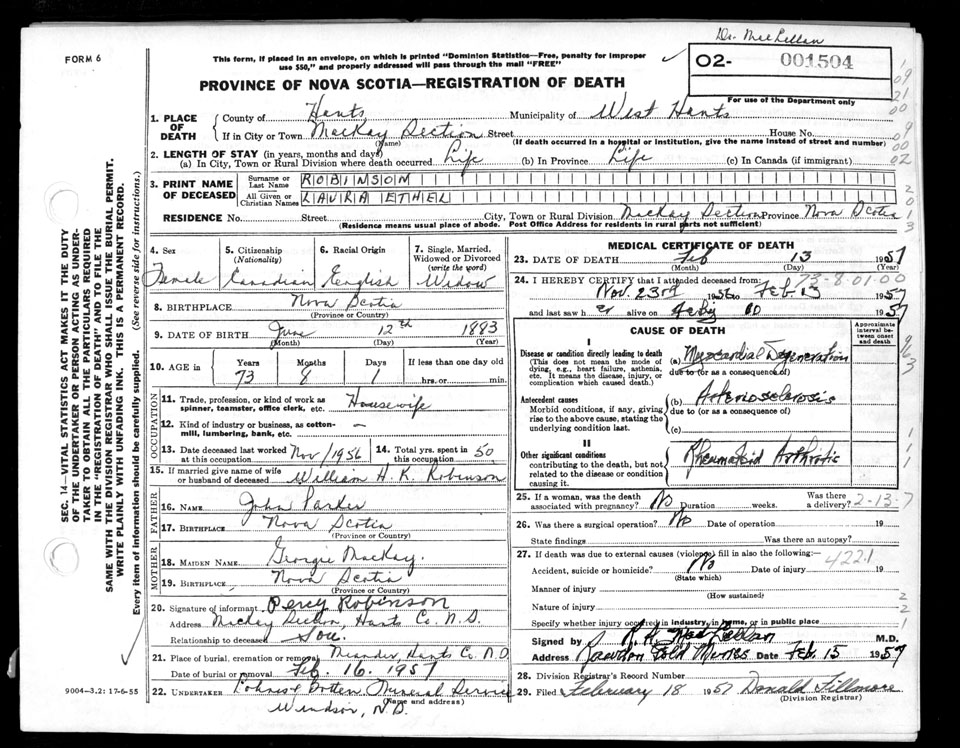 Dr. MacLellan
FORM 6
This form, if placed in an envelope, on which is printed "Dominion Statistics—Free, penalty for improper
use $50," and properly addressed will pass through the mail "FREE"
O2- 001504
For use of the Department only
PROVINCE OF NOVA SCOTIA—REGISTRATION OF DEATH
1. PLACE OF DEATH
County of Hants Municipality of West Hants
If in City or Town MacKay Section Street House No.
(Name) (If death occurred in a hospital or institution, give the name instead of street and number)
2. LENGTH OF STAY (in years, months and days)
(a) In City, Town or Rural Division where death occurred Life (b) In Province Life (c) In Canada (if immigrant)
3. PRINT NAME OF DECEASED
Surname or Last Name ROBINSON
All Given or Christian Names LAURA ETHEL
RESIDENCE No. Street City, Town or Rural Division MacKay Section Province Nova Scotia
(Residence means usual place of abode. Post Office Address for residents in rural parts not sufficient)
4. Sex 5. Citizenship (Nationality) 6. Racial Origin 7. Single, Married, Widowed or Divorced (write the word)
Female Canadian English Widow
8. BIRTHPLACE Nova Scotia
(Province or Country)
9. DATE OF BIRTH June 12th 1883
(Month) (Day) (Year)
10. AGE in Years Months Days If less than one day old
73 8 1 hrs. or min.
OCCUPATION
11. Trade, profession, or kind of work as Housewife
spinner, teamster, office clerk, etc.
12. Kind of industry or business, as cotton- —
mill, lumbering, bank, etc.
13. Date deceased last worked Nov / 1956 14. Total yrs. spent in 50
at this occupation this occupation
15. If married give name of wife
or husband of deceased William H. K. Robinson
FATHER
16. NAME John Parker
17. BIRTHPLACE Nova Scotia
(Province or Country)
MOTHER
18. MAIDEN NAME Georgie MacKay.
19. BIRTHPLACE Nova Scotia
(Province or Country)
20. Signature of informant Percy Robinson
Address MacKay Section, Hants Co. N.S.
Relationship to deceased Son.
21. Place of burial, cremation or removal Meander, Hants Co. N.S.
Date of burial or removal Feb. 16. 1957
22. UNDERTAKER Funeral Service
(Name and address)
Windsor, N.S.
9004-3.2: 17-6-55
MEDICAL CERTIFICATE OF DEATH
23. DATE OF DEATH Feb 13 1957
(Month) (Day) (Year)
73-8-01-00
24. I HEREBY CERTIFY that I attended deceased from:
Nov. 23rd 1956 to Feb 13 1957
and last saw her alive on 1957
CAUSE OF DEATH
Approximate interval between onset and death
I
Disease or condition directly leading to death (a) Myocardial Degeneration
(This does not mean the mode of dying, e.g., heart failure, asthenia, etc. It means the disease, injury, or complication which caused death.)
due to (or as a consequence of)
Antecedent causes (b) Arteriosclerosis
Morbid conditions, if any, giving rise to the above cause, stating the underlying condition last.
due to (or as a consequence of)
(c)
II
Other significant conditions Rheumatoid Arthritic
contributing to the death, but not related to the disease or condition causing it.
25. If a woman, was the death No Was there
associated with pregnancy? Duration weeks. a delivery? 2-13-7
26. Was there a surgical operation? No Date of operation 19
State findings Was there an autopsy?
27. If death was due to external causes (violence) fill in also the following:— 4221
Accident, suicide or homicide? No Date of injury 19
(State which)
Manner of injury
(How sustained)
Nature of injury
Specify whether injury occurred in industry, in home, or in public place
Signed by R. A. MacLellan M.D.
Address Rawdon Gold Mines Date Feb. 15 1957
28. Division Registrar's Record Number
29. Filed February 18 1957 Donald Fillmore
(Division Registrar)
SEC. 14—VITAL STATISTICS ACT MAKES IT THE DUTY
OF THE UNDERTAKER OR PERSON ACTING AS UNDER-
TAKER TO OBTAIN ALL THE PARTICULARS REQUIRED
IN THE "REGISTRATION OF DEATH" AND TO FILE THE
SAME WITH THE DIVISION REGISTRAR WHO SHALL ISSUE THE BURIAL PERMIT.
WRITE PLAINLY WITH UNFADING INK. THIS IS A PERMANENT RECORD.
Every item of information should be carefully supplied. (See reverse side for instructions.)